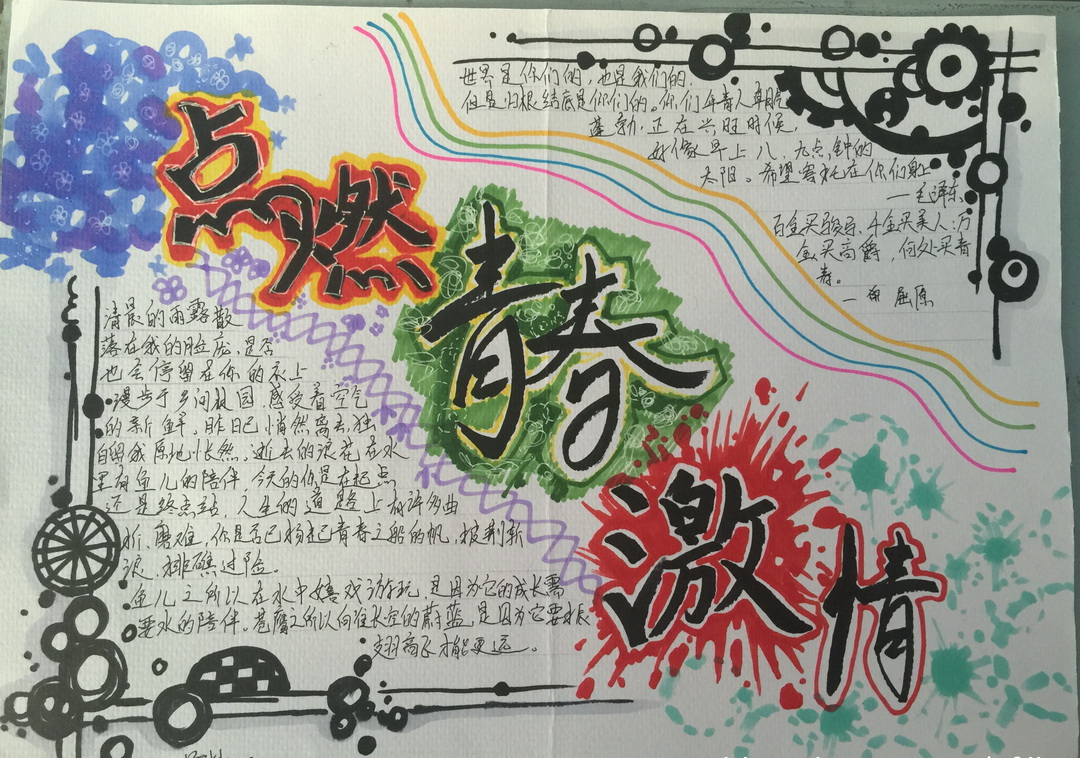 点燃
青春
激情
世界是你们的,也是我们的
但是归根结底是你们的。你们年青人朝气
蓬勃,正在兴旺时候,
好像早上八、九点钟的
太阳。希望寄托在你们身上
—毛泽东
百金买骏马,千金买美人;万
金买高爵,何处买青
春。
— 屈原
清晨的雨露散
落在我的脸庞,是否
也会停留在你的衣上
漫步于乡间校园,感受着空气
的新鲜,昨日已悄然离去,独
自留我原地怅然,逝去的浪花在水
里有鱼儿的陪伴,今天的你是在起点
还是终点站,人生的道路上有许多曲
折、磨难,你是否已扬起青春之船的帆,披荆斩
浪、排礁过险。
鱼儿之所以在水中嬉戏游玩,是因为它的成长需
要水的陪伴。苍鹰之所以向往长空的蔚蓝,是因为它要振
翅高飞才能更远。